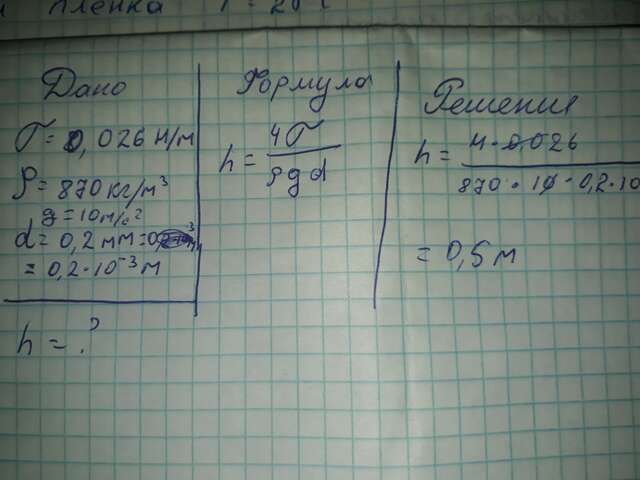 Пленка
Дано
σ = 0,026 Н/м
ρ = 870 кг/м³
g = 10 м/с²
d = 0,2 мм = 0,
= 0,2·10⁻³ м
h = ?
Формула
h = 4σ / ρgd
Решения
h = 4·0,026 / 870·10·0,2·10
= 0,5 м